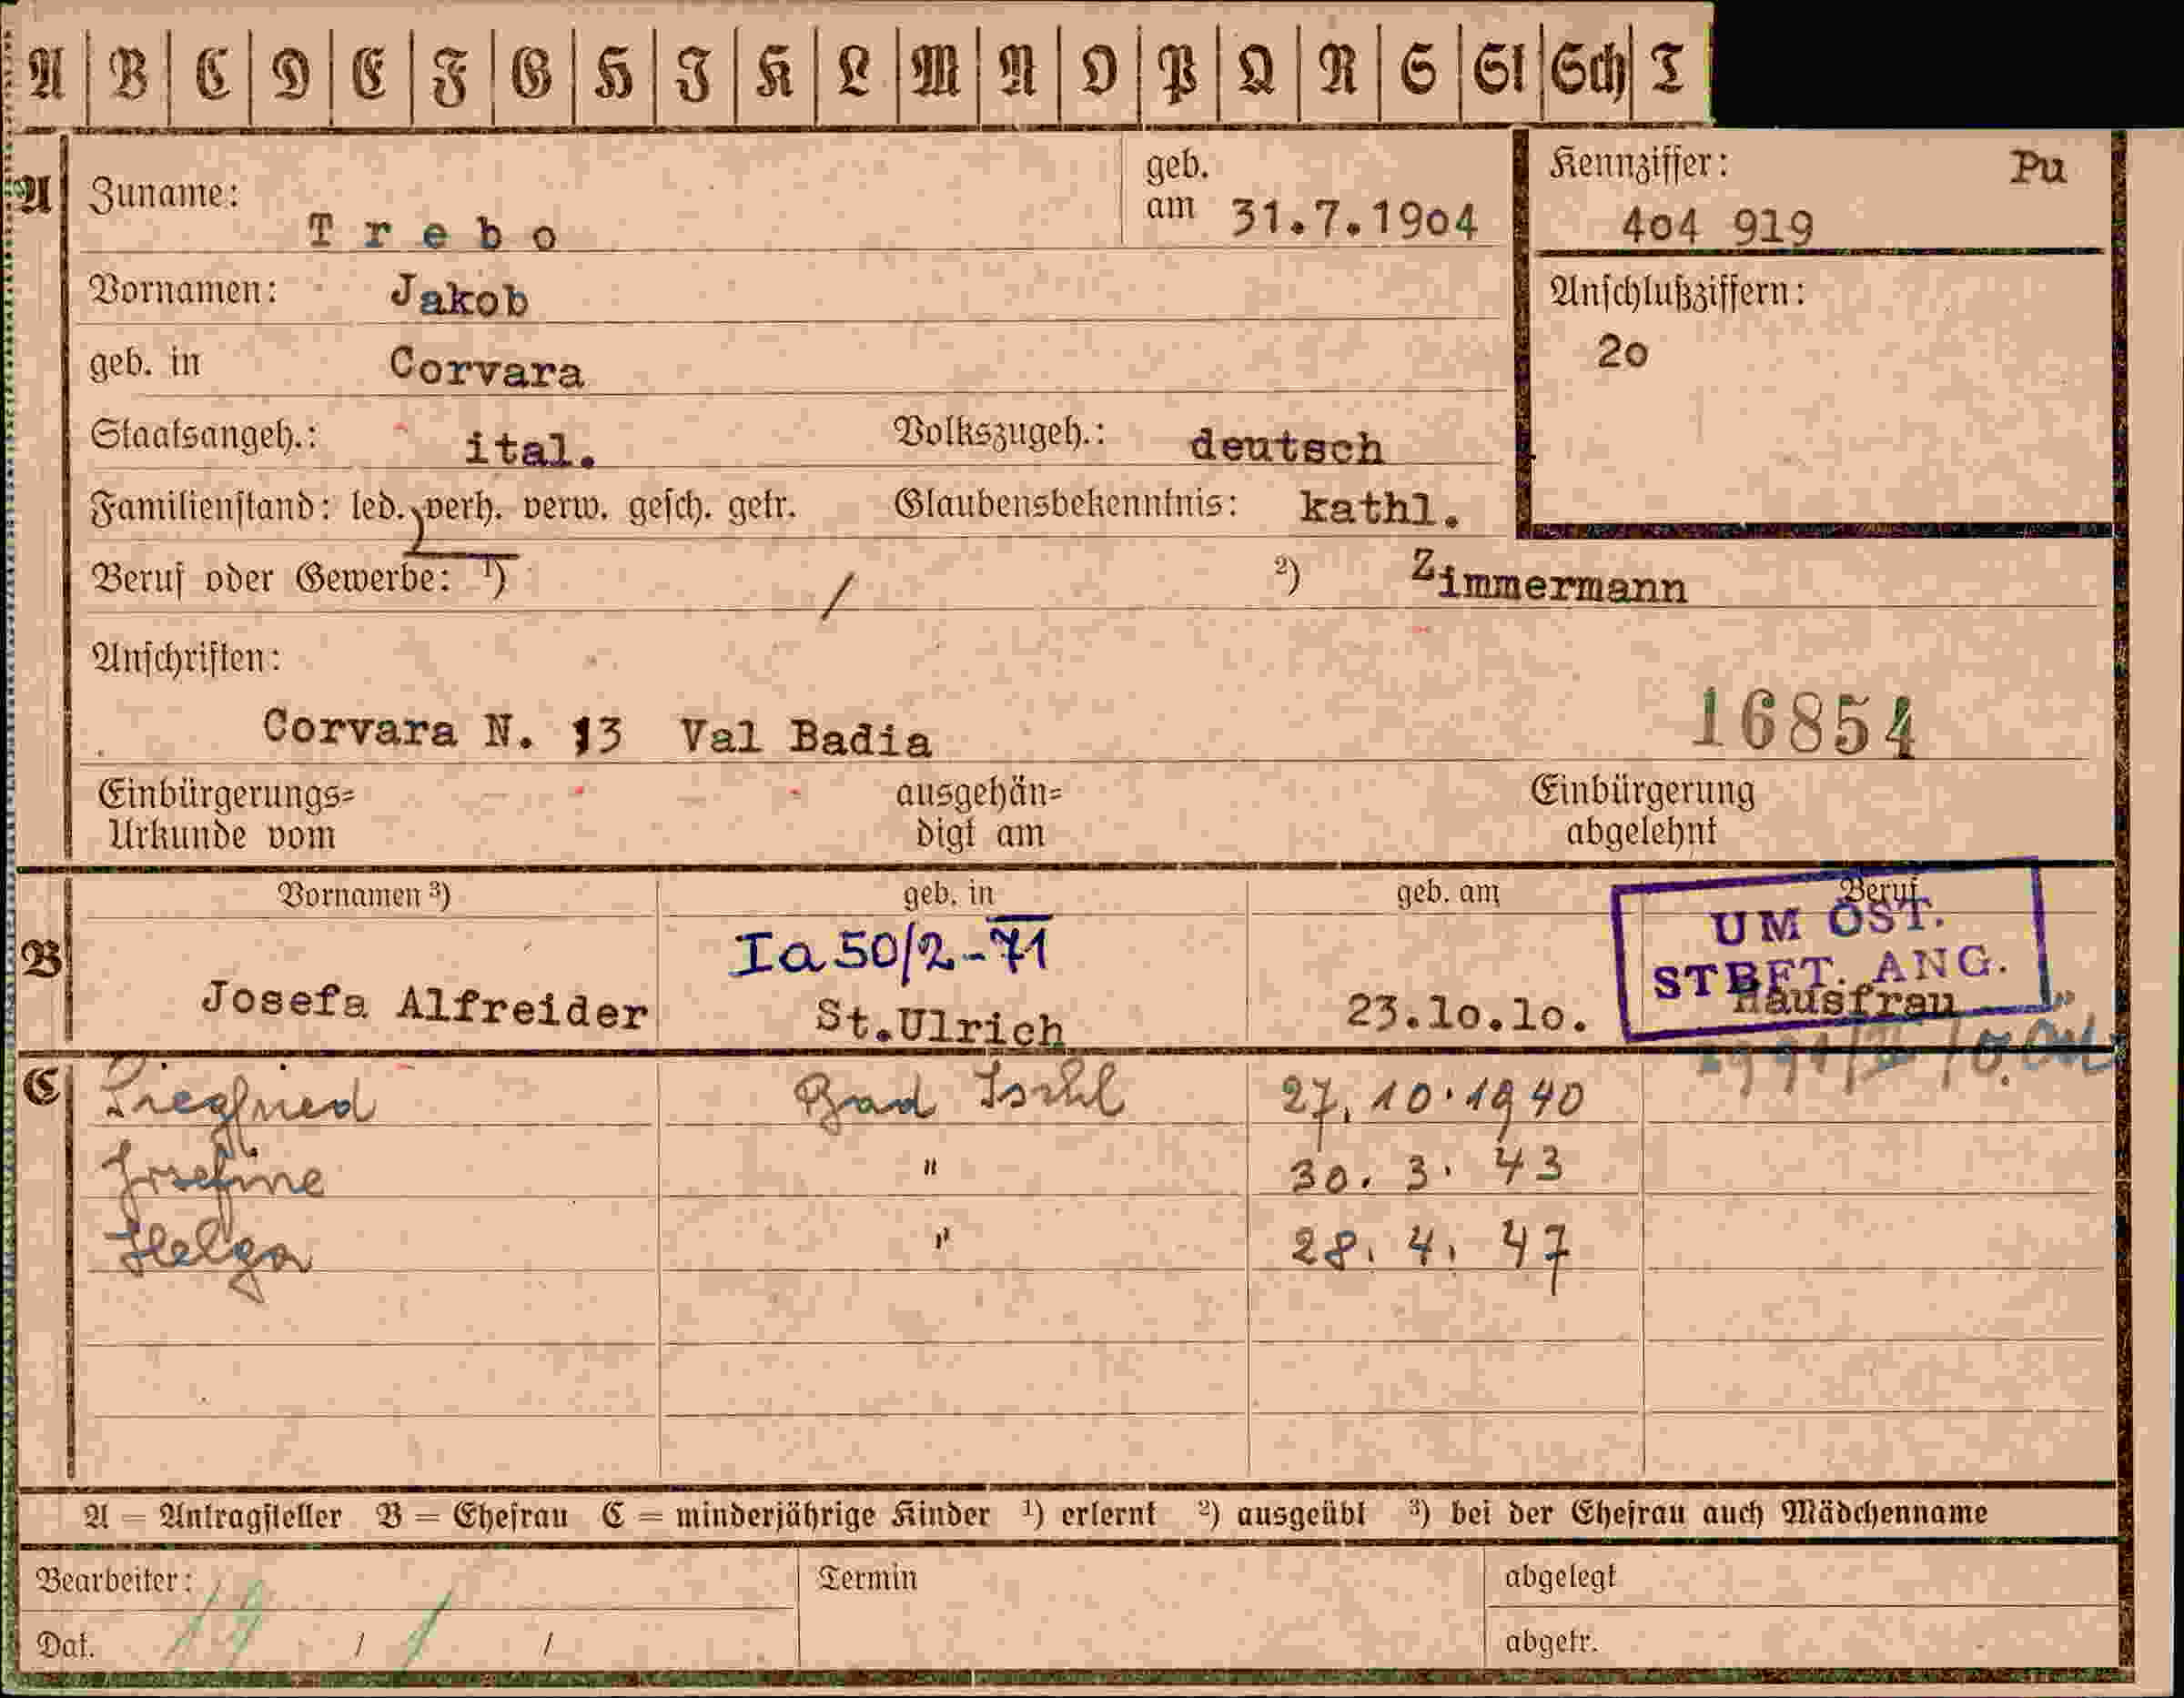 A B C D E F G H I K L M N O P Q R S St Sch T
A Zuname: T r e b o geb. am 31.7.19o4 Kennziffer: Pu
4o4 919
Vornamen: Jakob Anschlußziffern:
geb. in Corvara 2o
Staatsangeh.: ital. Volkszugeh.: deutsch
Familienstand: led. verh. verw. gesch. getr. Glaubensbekenntnis: kathl.
Beruf oder Gewerbe: ¹) / ²) Zimmermann
Anschriften:
Corvara N. 13 Val Badia 16854
Einbürgerungs= ausgehän= Einbürgerung
Urkunde vom digt am abgelehnt
B Vornamen ³) geb. in geb. am Beruf
Ia 50/2-71 UM ÖST.
STBFT. ANG.
Josefa Alfreider St.Ulrich 23.1o.1o. Hausfrau
C Siegfried Bad Ischl 27. 10. 1940
Josefine " 30. 3. 43
Helga " 28. 4. 47
A = Antragsteller B = Ehefrau C = minderjährige Kinder ¹) erlernt ²) ausgeübt ³) bei der Ehefrau auch Mädchenname
Bearbeiter: Termin abgelegt
Dat. 19 / 1 / abgetr.